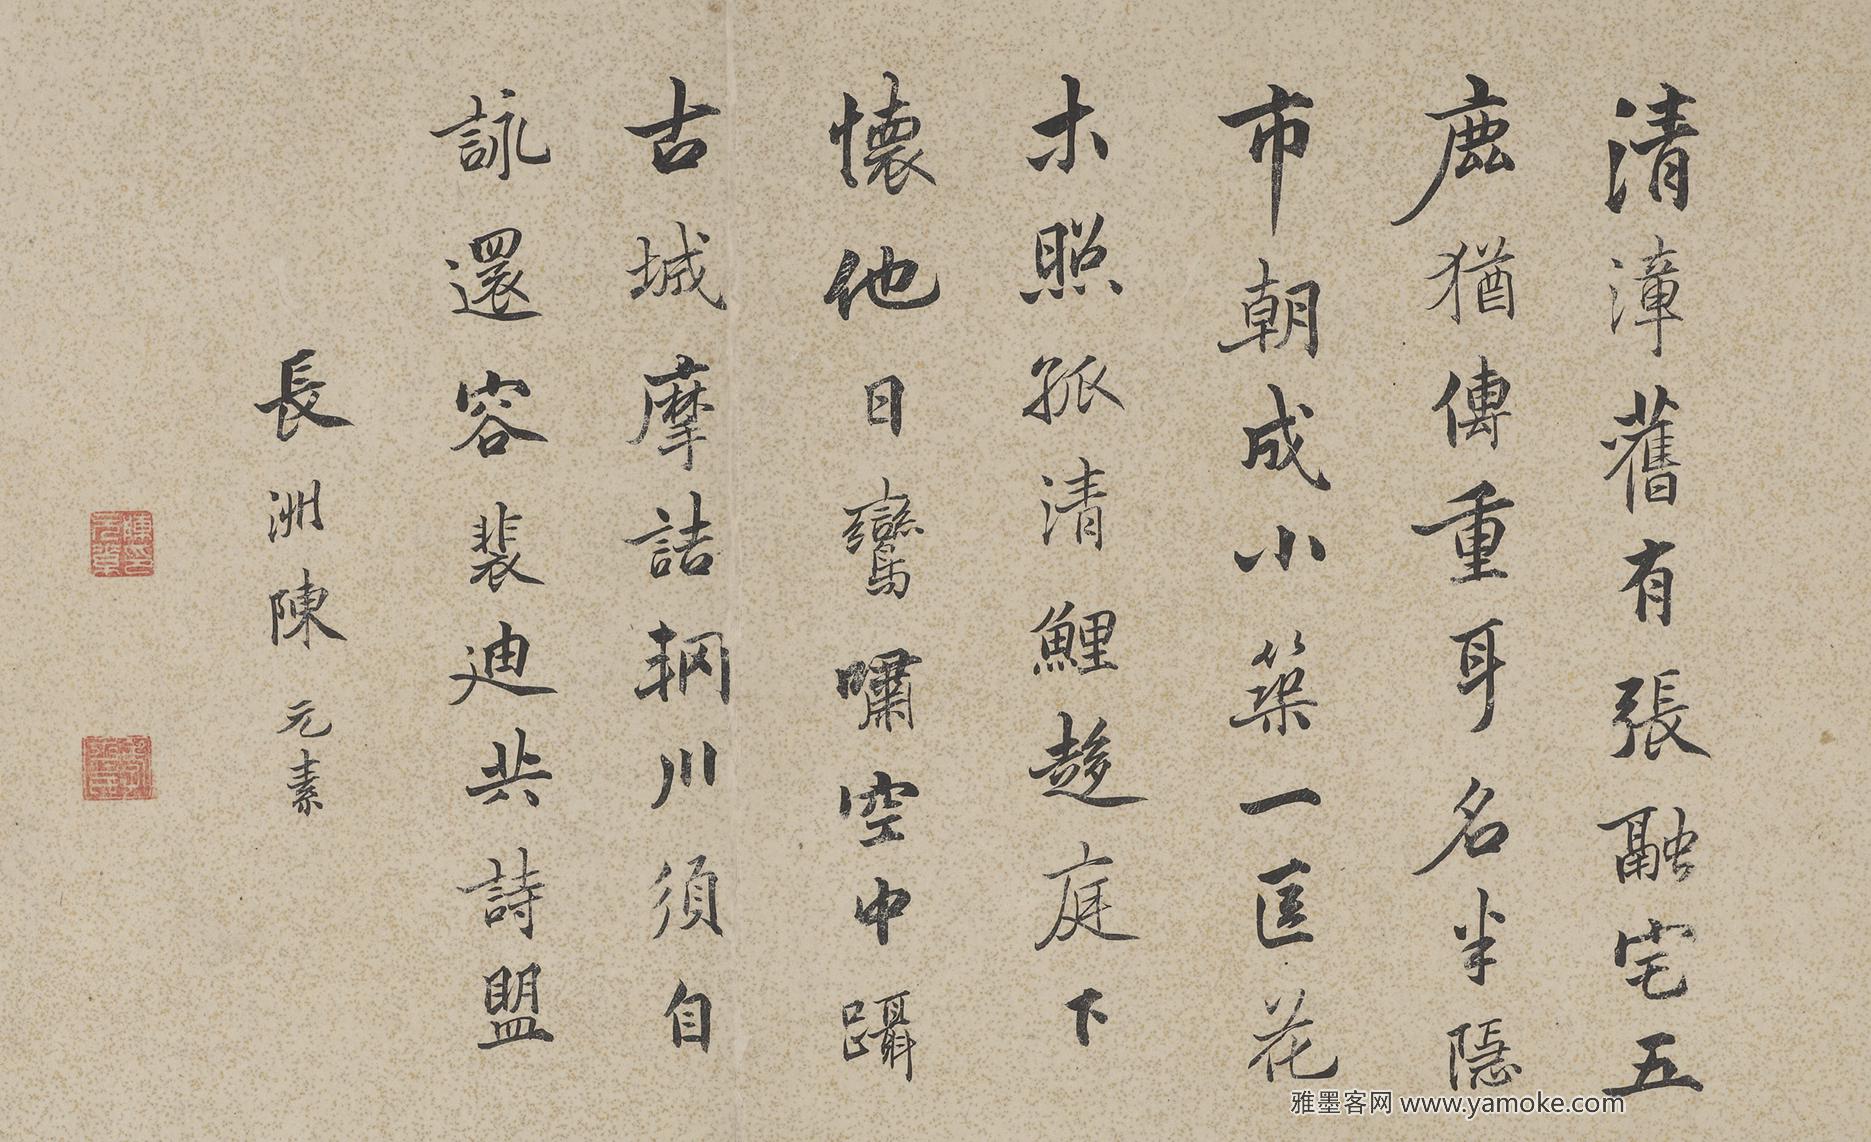 清漳舊有張融宅五
鹿猶傳重耳名半隱
市朝成小築一匡花
木照孤清鯉趍庭下
懷他日鸞嘯空中躡
古城摩詰輞川須自
詠還容裴迪共詩盟
長洲陳元素
雅墨客网 www.yamoke.com